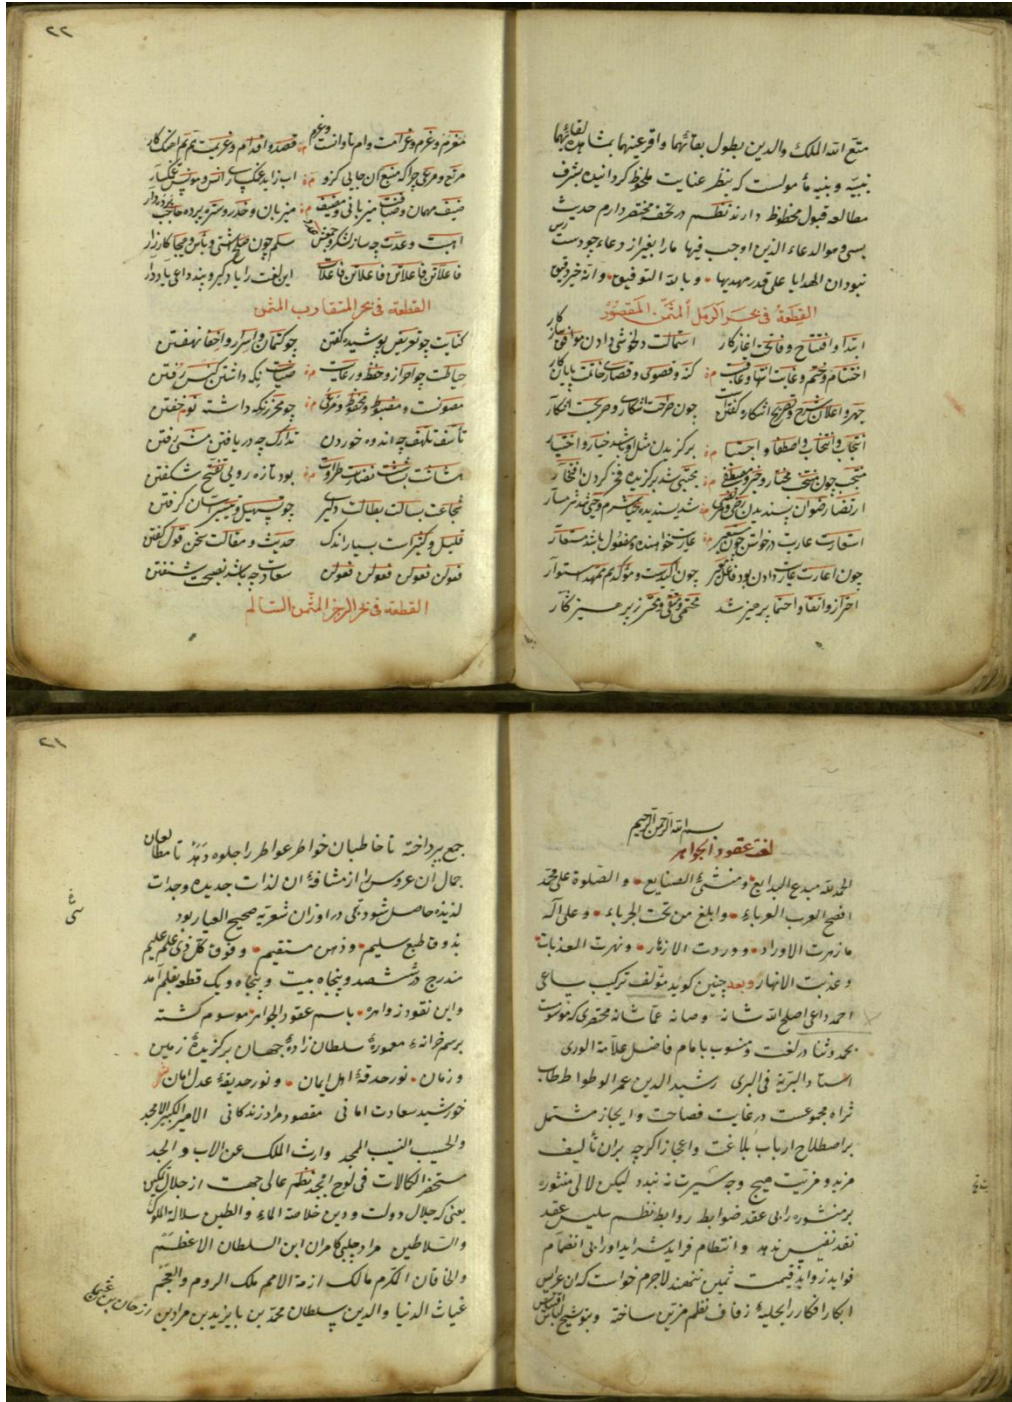 متّع الله الملك والدين بطول بقائهما واقرعينهما بمشاهدة لقائهما
نبيّه و بنيه مأمولست که بنظر عنایت ملحوظ کردانیده بشرف
مطالعه قبول محظوظ دارند نظم در تحف مختصر دارم حدیث
بسی و موالدعاء الذین اوجب فیها مارا بغیر از دعاء چو دست رس
نبود ان الهدایا علی قدر مهدیها و بالله التوفیق و انه خیر رفیق
القطعة فی بحر الرمل المثمن المقصور
ابتدا و افتتاح و فاتحه اغاز کار استمالت دلخوشی دادن موافق سازکار
اختتام و ختم و غایت انتها و عاقبت کنه و قصوی و قصاری خاتمت پایان کار
جهر و اعلان شرح و تصریح اشکاره کفتن چون صراحت اشکاری و صریحت اشکار
انتجاب و انتخاب و اصطفا و اجتبا برکزیدن مثل او باشد خیار و اختیار
منتجب چون منتخب مختار و خیر و مصطفی مجتبی شد برکزیده فخر کردن افتخار
ارتضا رضوان پسندیدن رضی و مرتضی شد پسندیده
استعارت عاریت درخواستن چون مستعیر عاریت خواهنده و مفعول باشد مستعار
چون اعارت عاریت دادن بود فاعل معیر چون اکیدست و مؤکد هم ممهد استوار
احتراز و اتقا و احتما پرهیز شد محتمی و متقی و محترز پرهیزکار
۲۲
مغرم و غرم و غرامت وام تاوانست و غرم قصد و اقدام و عزیمت
مرتع و مرعی چراکه منبع کان جایی کزو اب زاید
ضیف مهمان و ضیافت میزبانی و مضیف میزبان و خدر و ستره پرده حاجب پرده دار
اهبت و عدت چه ساز لشکر و جیش سلم چون صلح اشتی و بأس و هیجا کارزار
فاعلاتن فاعلاتن فاعلاتن فاعلات این لغت را یاد کیر و بنده داعی یاددار
القطعه فی بحر المتقارب المثمن
کنایت چو تعریض پوشیده کفتن چو کتمان و اسرار و اخفا نهفتن
حیاطت چو احراز و حفظ و رعایت صیانت نکه داشتن کنس رفتن
مصونست و مضبوط و محفوظ و مرعی چو محرز نکه داشته نوم خفتن
تأسف تلهف چه اندوه خوردن تدارک چه دریافتن مشی رفتن
هشاشت بشاشت نضارت طراوت بود تازه رویی تفتح شکفتن
شجاعت بسالت بطالت دلیری چو تسهیل و تیسیر اسان کرفتن
قلیل و کثیر اندک بسیار حدیث و مقالت سخن قول کفتن
فعولن فعولن فعولن فعولن سعادت چه باشد نصیحت شنفتن
القطعه فی بحر الرجز المثمن السالم
بسم الله الرحمن الرحیم
لغت عقود الجواهر
الحمد لله مبدع البدایع و منشئ الصنایع و الصلوة علی محمد
افصح العرب العرباء و ابلغ من تحت الجرباء و علی آله
ما زهرت الاوراد و وردت الازهار و نهرت العذبات
و عذبت الانهار و بعد چنین کوید مؤلف ترکیب ساعی
احمد داعی اصلح الله شانه و صانه عما شانه مختصری که موسوست
بحمد و ثنا در لغت و منسوب بامام فاضل علامة الوری
استاد البریّة فی البری رشید الدین عمر الوطواط طاب
ثراه مجموعست در غایت فصاحت و ایجاز مشتمل
بر اصطلاح ارباب بلاغت و اعجاز اکرچه بران تألیف
مزید و مزیّت هیچ وجه میسّر نه نبدد لیکن لالی منثوره
بر منشوره را بی عقد ضوابط روابط نظم سلیس عقد
نقد نفیس ندهد و انتظام فراید شراید او را بی انضمام
فواید زواید قیمت ثمین ننهند لاجرم خواست که ان عرایس
ابکار افکار را بحلیهٔ زفاف نظم مزیّن ساخته و بتوشیح لباس اقتباس
۲۱
جمع پرداخته تا خاطبان خواطر عواطر را جلوه دهد تا مطالعان
جمال ان عروس را از مشافهٔ ان لذات جدیده و جدات
لذیذه حاصل شود بحری در اوزان شعریّه صحیح العیار بود
بذوق طبع سلیم و ذهن مستقیم و فوق کل ذی علم علیم
مندرج در ششصد و پنجاه بیت و پنجاه و یک قطعه بقلم آمد
و این نقود زواهر باسم عقود الجواهر موسوم کشته
برسم خزانهٔ معمورهٔ سلطان زادهٔ جهان برکزیدهٔ زمین
و زمان نور حدقهٔ اهل ایمان و نور حدیقهٔ عدل امان
خورشید سعادت امانی مقصود مراد زندکانی الامیر الکبیر الامجد
والحسیب النسیب الممجد وارث الملک عن الاب و الجد
مستحضر الکمالات فی لوح ابجد نظم عالی جهت از جلال تمکین
یعنی که جلال دولت و دین خلاصة الماء و الطین سلالة الملوک
والسلاطین مراد چلبی کامران ابن السلطان الاعظم
والخاقان المکرم مالک ازمة الامم ملک الروم والعجم
غیاث الدنیا و الدین سلطان محمد بن بایزید بن مراد بن